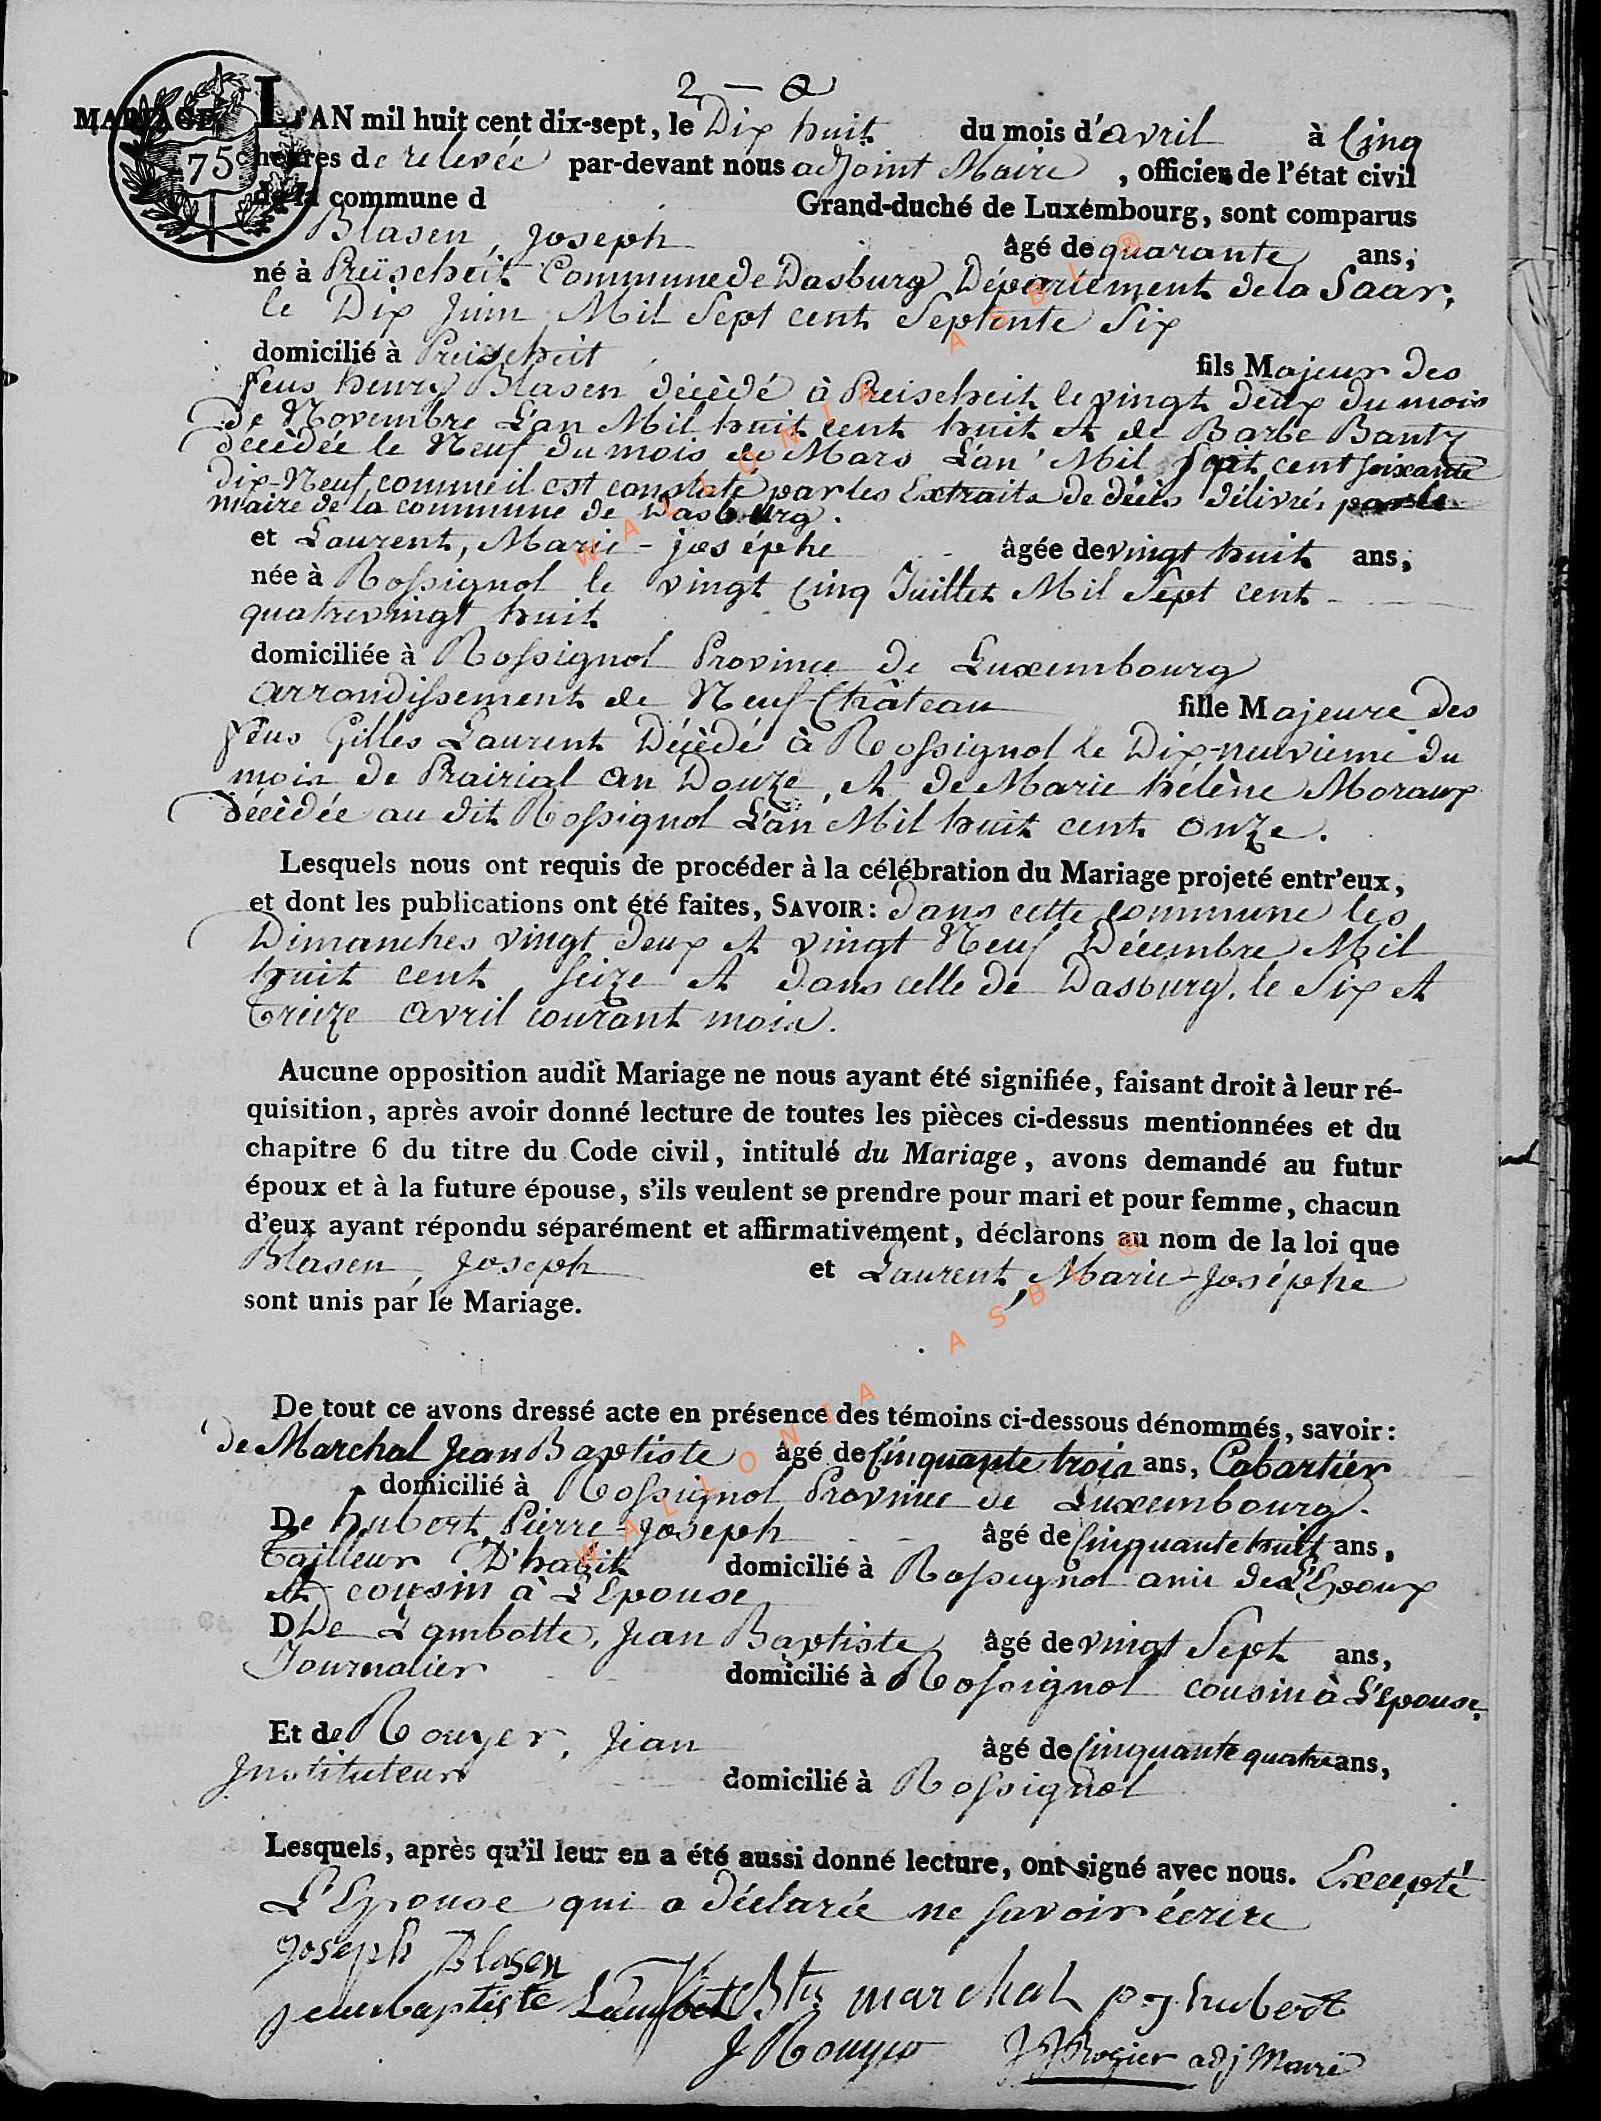 2 — a
MARIAGE
75c
L'AN mil huit cent dix-sept, le Dix huit du mois d'avril à Cinq
heures de relevée par-devant nous adjoint Maire, officier de l'état civil
de la commune d Grand-duché de Luxembourg, sont comparus
Blasen, Joseph âgé de quarante ans;
né à Preischeit Commune de Dasburg Département de la Saar,
le Dix Juin Mil Sept cent Septente Six
domicilié à Preischeit fils Majeur des
feus henry Blasen décèdé à Preischeit le vingt deux du mois
de Novembre L'an Mil huit cent huit et de Barbe Bantz
décèdée le Neuf du mois de Mars L'an Mil Sept cent soixante
Dix-Neuf comme il est constaté par les Extraits de décès délivrés par le
maire de la commune de Dasburg.
et Laurent, Marie-joséphe âgée de vingt huit ans;
née à Rossignol le vingt Cinq Juillet Mil Sept cent
quatrevingt huit
domiciliée à Rossignol Province de Luxembourg
arrondissement de Neuf-Château fille Majeure des
feus Gilles Laurent Décèdé à Rossignol le Dix-neuvieme du
mois de Prairial an Douze, et de Marie hélène Moraux
décèdée au dit Rossignol L'an Mil huit cent onze.
Lesquels nous ont requis de procéder à la célébration du Mariage projeté entr'eux,
et dont les publications ont été faites, SAVOIR: dans cette commune les
Dimanches vingt deux et vingt Neuf Décembre Mil
huit cent Seize et dans celle de Dasburg, le Six et
Treize avril courant mois.
Aucune opposition audit Mariage ne nous ayant été signifiée, faisant droit à leur ré-
quisition, après avoir donné lecture de toutes les pièces ci-dessus mentionnées et du
chapitre 6 du titre du Code civil, intitulé du Mariage, avons demandé au futur
époux et à la future épouse, s'ils veulent se prendre pour mari et pour femme, chacun
d'eux ayant répondu séparément et affirmativement, déclarons au nom de la loi que
Blasen, Joseph et Laurent, Marie-Joséphe
sont unis par le Mariage.
De tout ce avons dressé acte en présence des témoins ci-dessous dénommés, savoir:
de Marchal Jean Baptiste âgé de Cinquante trois ans, Cabartier
domicilié à Rossignol Province de Luxembourg.
De hubert Pierre-Joseph âgé de Cinquante huit ans,
Tailleur D'habit domicilié à Rossignol ami de L'Epoux
et cousin à L'Epouse
D De Lambotte, Jean Baptiste âgé de vingt Sept ans,
Journalier domicilié à Rossignol cousin à L'épouse,
Et de Rouyer, Jean âgé de Cinquante quatre ans,
Instituteur domicilié à Rossignol
Lesquels, après qu'il leur en a été aussi donné lecture, ont signé avec nous. Excepté
L'Epouse qui a déclarée ne savoir écrire
Joseph Blasen
jeanbaptiste Lambot J Bte marchal p j hubert
J Rouyer J J Rogier adj Maire
WALLONIA ASBL ®
WALLONIA ASBL ®